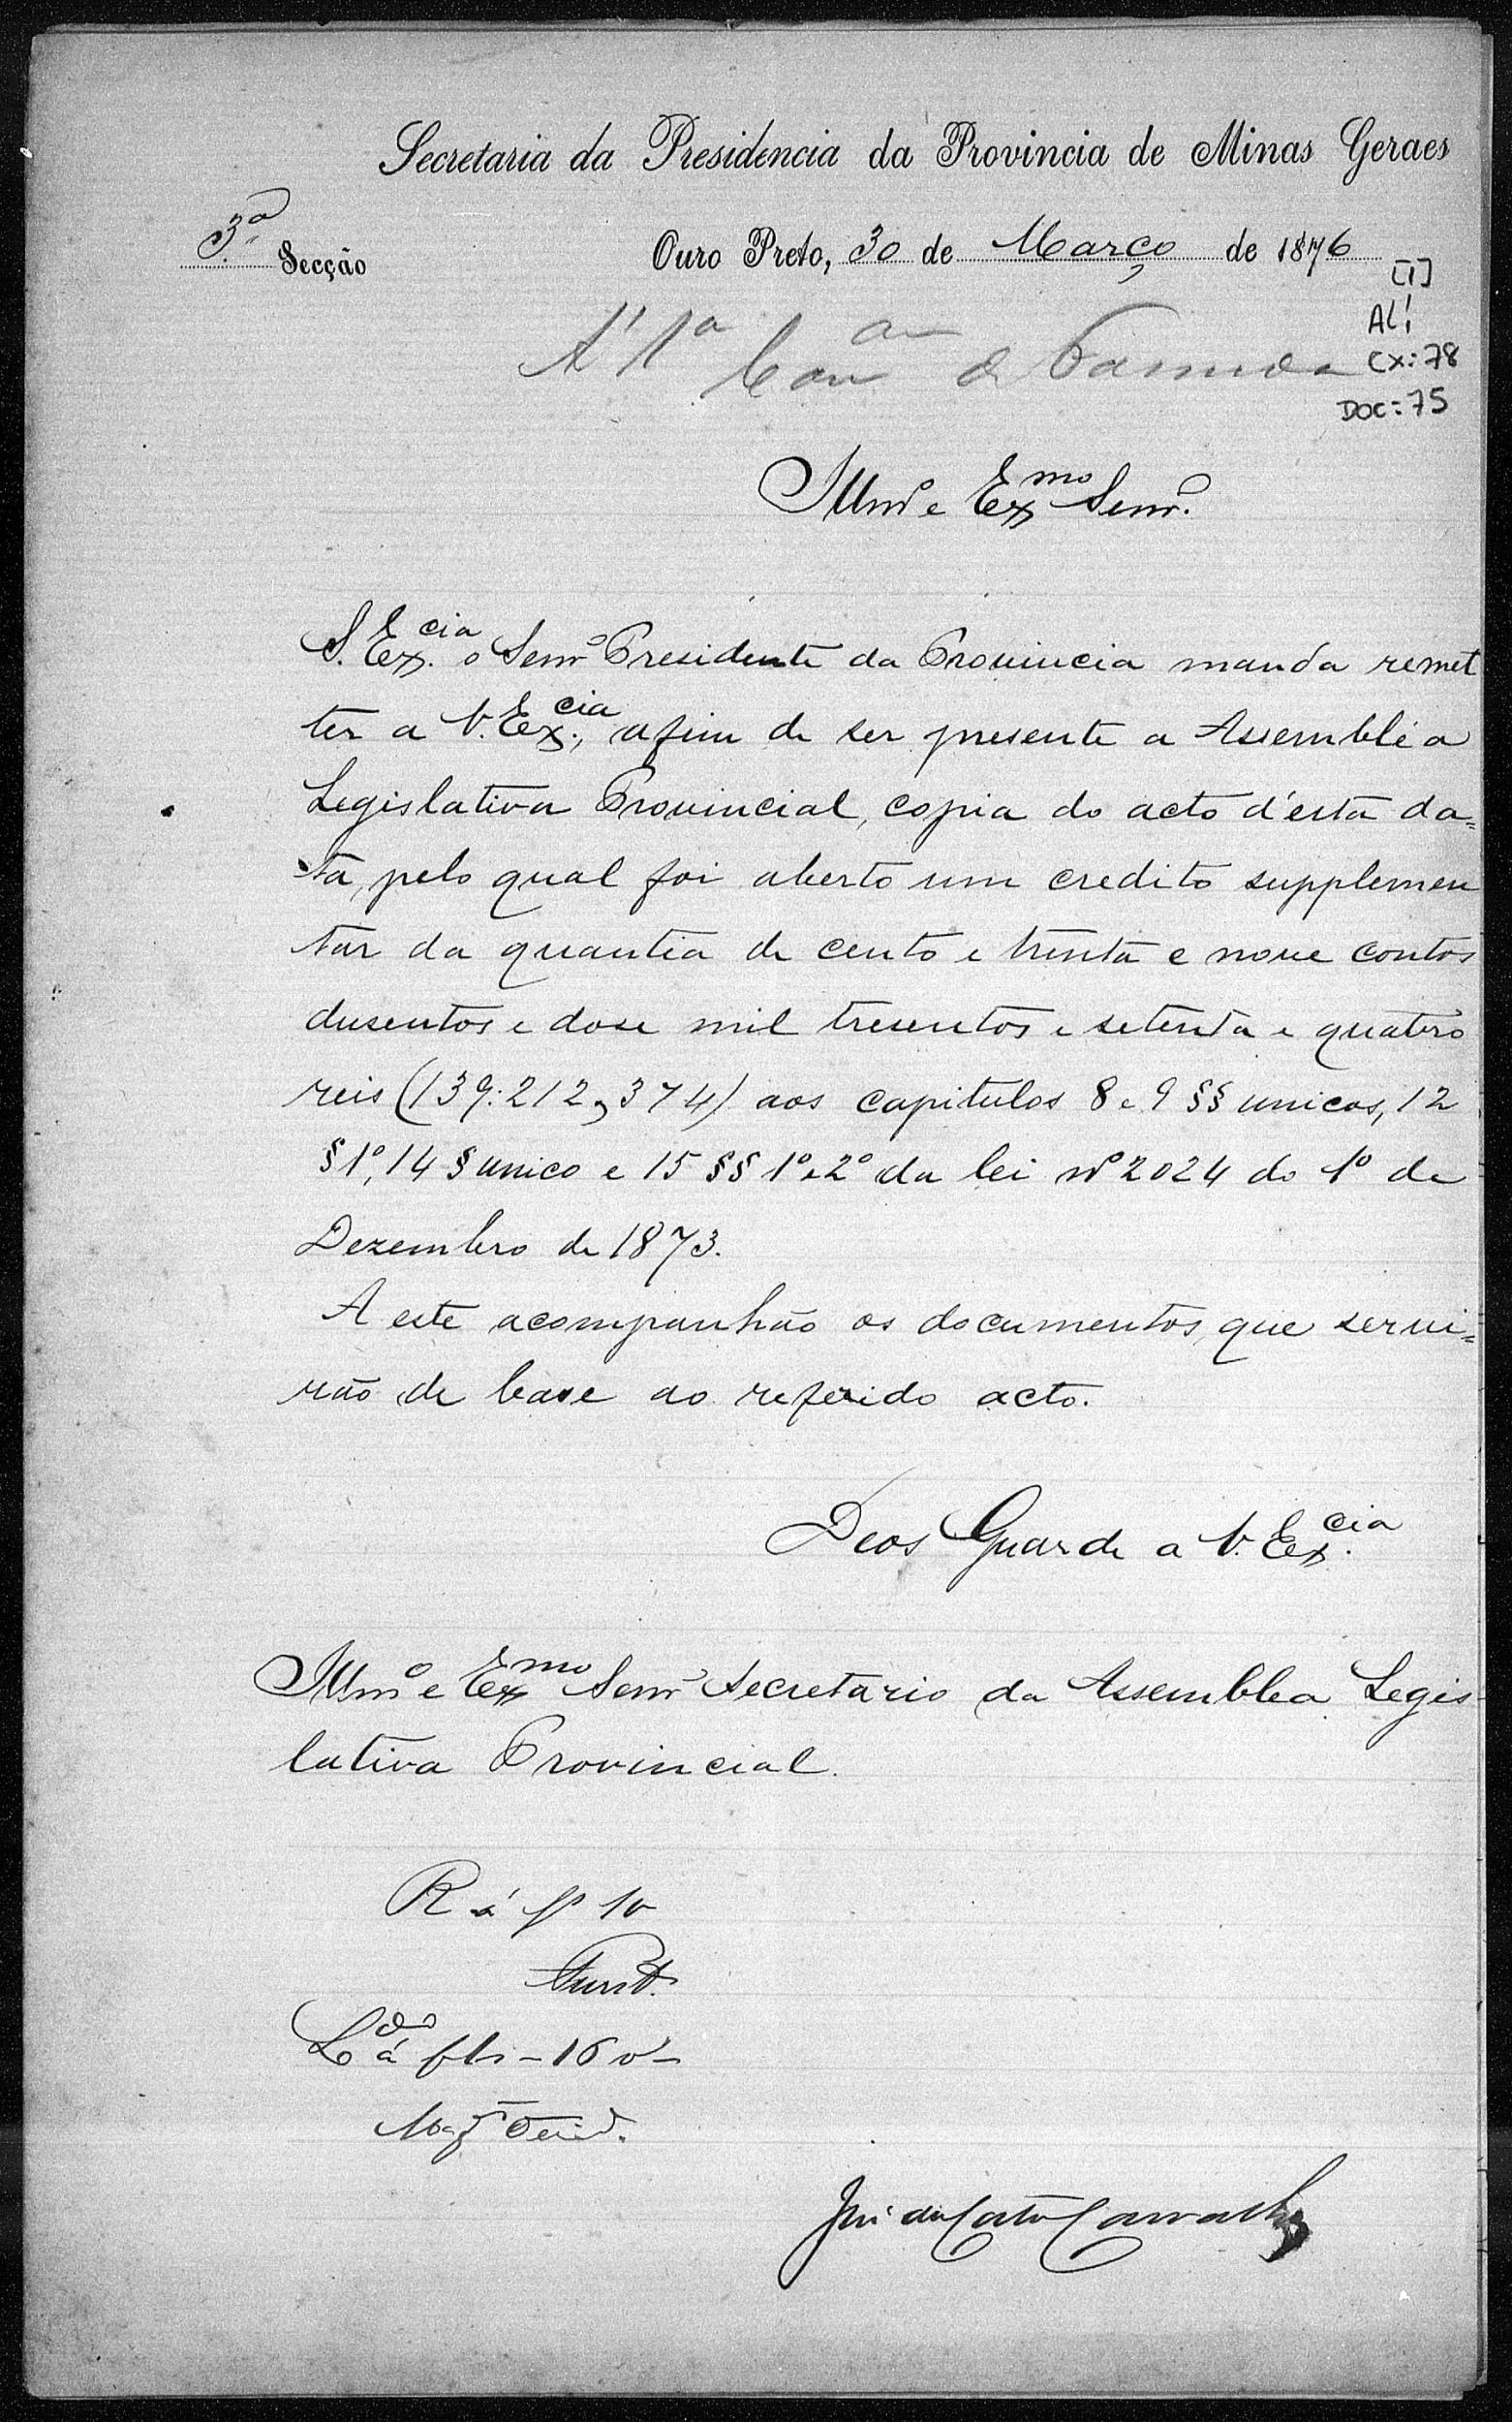 Secretaria da Presidencia da Provincia de Minas Geraes
3ª Secção
Ouro Preto, 30 de Março de 1876
[1]
AL1
CX: 78
DOC: 75
A' 1ª
Illmº e Exmo Senrº.
S. Excia. o Senrº Presidente da Provincia manda remet
ter a V. Excia., afim de ser presente a Assembléa
Legislativa Provincial, copia do acto d'esta da=
ta, pelo qual foi aberto um credito supplemen
tar da quantia de cento e trinta e nove contos
dusentos e dose mil tresentos e setenta e quatro
reis (139:212,374) aos capitulos 8 e 9 §§ unicos, 12
§ 1º, 14 § unico e 15 §§ 1º e 2º da lei nº 2024 do 1º de
Dezembro de 1873.
A este acompanhão os documentos, que servi=
rão de base ao referido acto.
Deos Guarde a V. Excia.
Illmº e Exmo Senrº Secretario da Assemblea Legis
lativa Provincial.
R á f 10
Ldo á fls - 16 v -